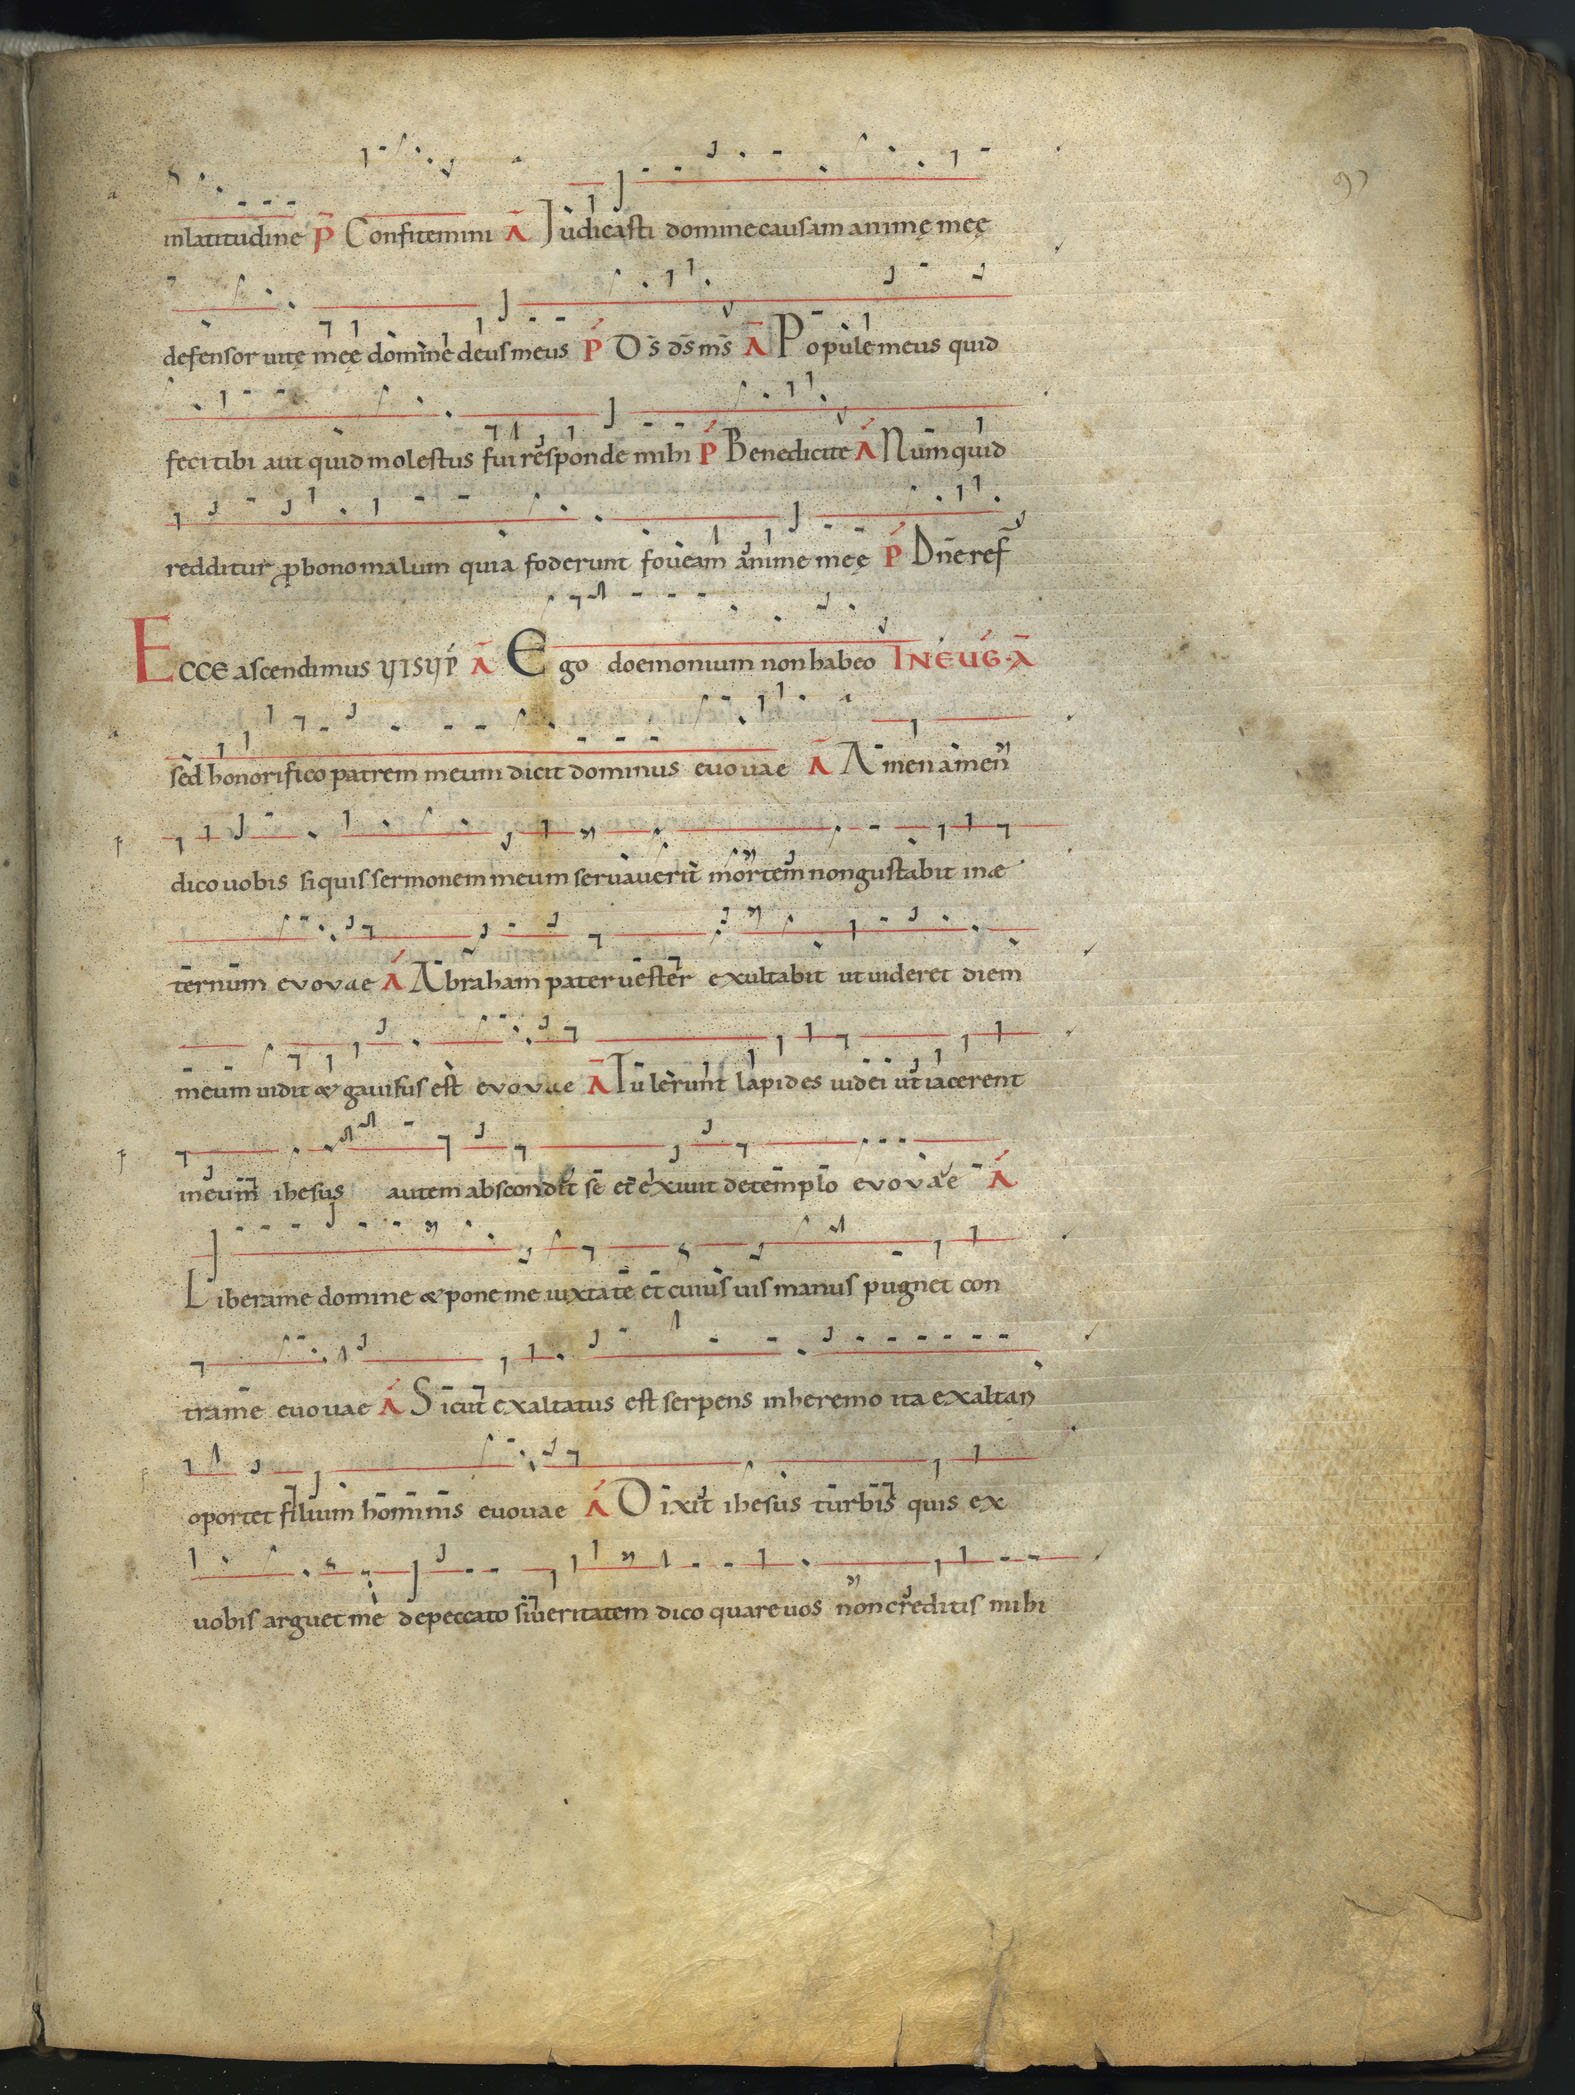 inlatitudine P̄ Confitemini Ā Iudicasti domine causam animę meę
defensor uitę meę domine deus meus P̄ D̄s d̄s m̄s Ā Popule meus quid
feci tibi aut quid molestus fui responde mihi P̄ Benedicite Ā Numquid
redditur ꝓ bono malum quia foderunt foueam anime meę P̄ Dn̄e ref
Ecce ascendimus Ā Ego doemonium non habeo IN EUG A
sed honorifico patrem meum dicit dominus euouae Ā Amen amen
dico uobis si quis sermonem meum seruauerit mortem non gustabit in æ
ternum evovae Ā Abraham pater uester exultabit ut uideret diem
meum uidit & gauisus est evovae Ā Tulerunt lapides uidei ut iacerent
in eum ihesus autem abscondit se et exiuit de templo evovae Ā
Libera me domine & pone me iuxta te et cuius uis manus pugnet con
tra me euouae Ā Sicut exaltatus est serpens in heremo ita exaltari
oportet filium hominis euouae Ā Dixit ihesus turbis quis ex
uobis arguet me de peccato si ueritatem dico quare uos non creditis mihi